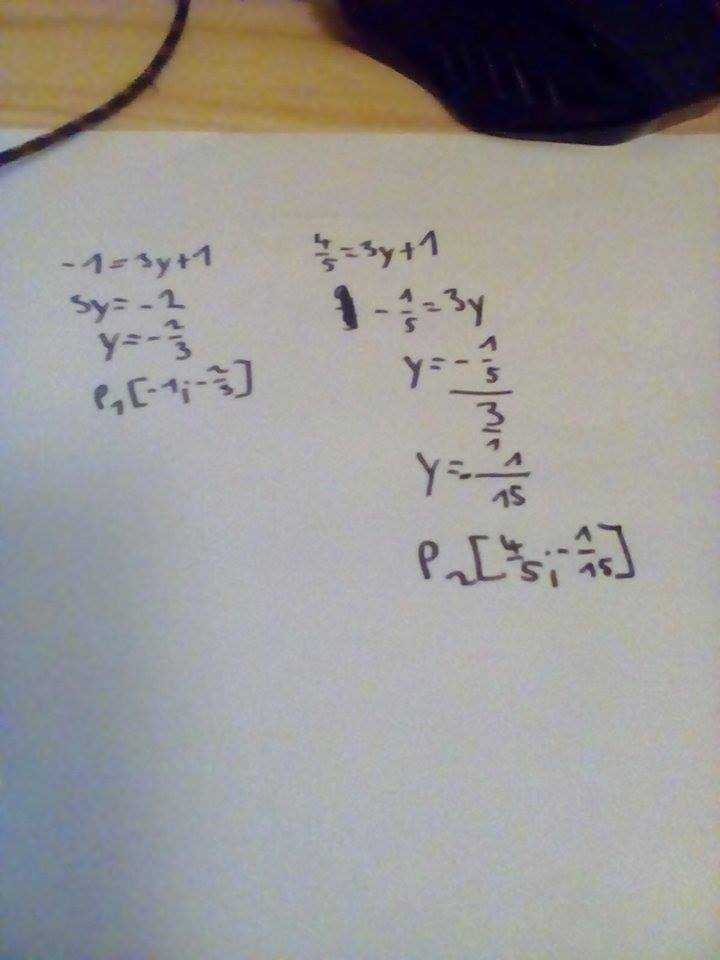 -1=3y+1
3y=-2
y=-2/3
P₁[-1;-2/3]
4/5=3y+1
-1/5=3y
y=-1/5
3
1
y=-1/15
P₂[4/5;-1/15]